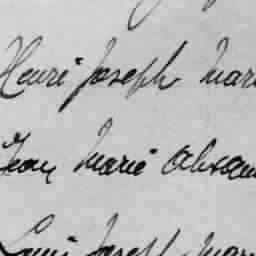 Henri Joseph Mari
Jean Marie
Louis Joseph Mari